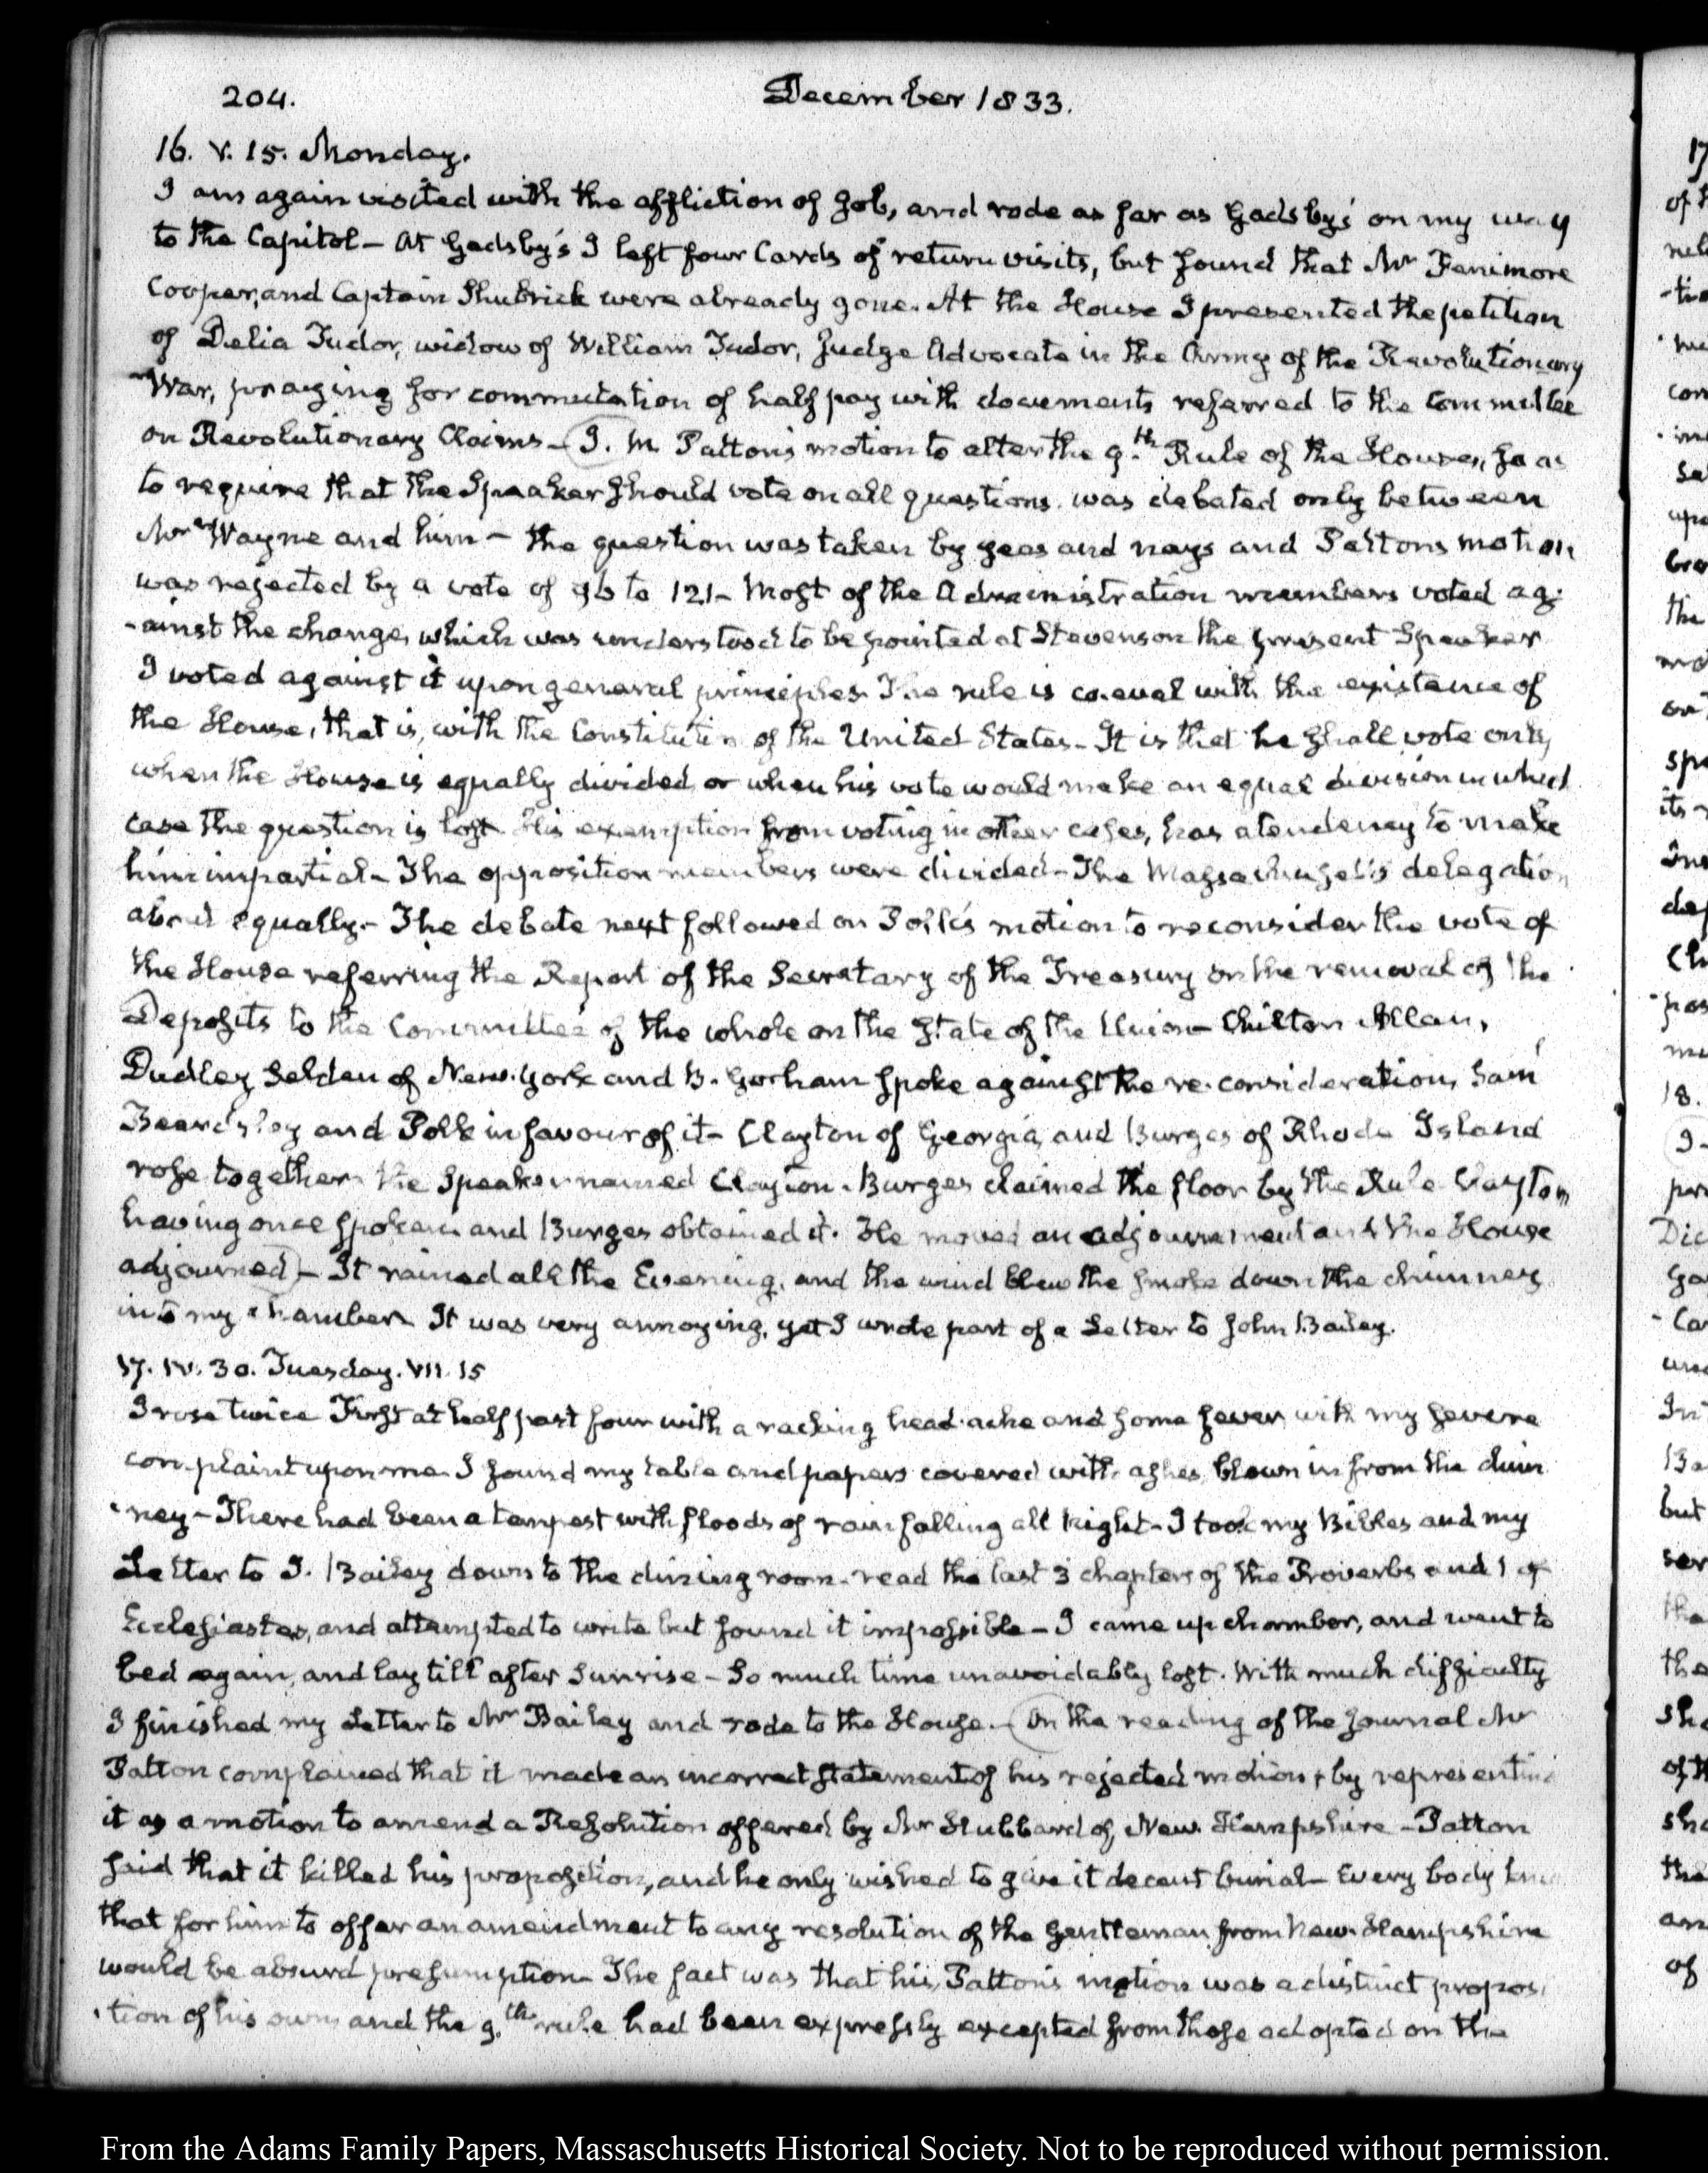 204. December 1833.
16. V. 15. Monday.
I am again visited with the affliction of Job, and rode as far as Gadsby's on my way
to the Capitol— At Gadsby's I left four Cards of return visits, but found that Mr Fenimore
Cooper, and Captain Shubrick were already gone. At the House I presented the petition
of Delia Tudor, widow of William Tudor, Judge Advocate in the Army of the Revolutionary
War, praying for commutation of half pay with documents referred to the Committee
on Revolutionary Claims— J. M. Patton's motion to alter the 9.th Rule of the House, so as
to require that the Speaker should vote on all questions was debated only between
Mr Wayne and him— the question was taken by yeas and nays and Pattons motion
was rejected by a vote of 96 to 121— Most of the Administration members voted ag-
-ainst the change, which was understood to be pointed at Stevenson the present Speaker
I voted against it upon general principles. The rule is coeval with the existence of
the House, that is, with the Constitution of the United States— It is that he shall vote only
when the House is equally divided or when his vote would make an equal division in which
case the question is lost. His exemption from voting in other cases, has a tendency to make
him impartial— The opposition members were divided— The Massachusetts delegation
about equally.— The debate next followed on Polk's motion to reconsider the vote of
the House referring the Report of the Secretary of the Treasury on the removal of the
Deposits to the Committee of the whole on the State of the Union— Chilton Allan,
Dudley Selden of New-York and B. Gorham spoke against the re-consideration, Saml
Beardsley and Polk in favour of it— Clayton of Georgia, and Burges of Rhode Island
rose together. the Speaker named Clayton. Burges claimed the floor by the Rule Clayton
having once spoken and Burges obtained it. He moved an adjournment and the House
adjourned— It rained all the Evening, and the wind blew the smoke down the chimney
into my chamber. It was very annoying, yet I wrote part of a Letter to John Bailey.
17. IV. 30. Tuesday. VII. 15
I rose twice First at half past four with a racking head-ache and some fever with my severe
complaint upon me. I found my table and papers covered with ashes, blown in from the chim
-ney— There had been a tempest with floods of rain falling all Night— I took my Bibles and my
Letter to J. Bailey down to the dining room. read the last 3 chapters of the Proverbs and 1 of
Ecclesiastes, and attempted to write but found it impossible— I came up chamber, and went to
bed again, and lay till after Sunrise— So much time unavoidably lost. With much difficulty
I finished my Letter to Mr Bailey and rode to the House.— On the reading of the Journal Mr
Patton complained that it made an incorrect statement of his rejected motion, by representing
it as a motion to amend a Resolution offered by Mr Hubbard of New-Hampshire— Patton
said that it killed his proposition, and he only wished to give it decent burial— Every body knew
that for him to offer an amendment to any resolution of the Gentleman from New-Hampshire
would be absurd presumption— The fact was that his, Patton's motion was a distinct proposi
-tion of his own, and the 9.th rule had been expressly excepted from those adopted on the
From the Adams Family Papers, Massaschusetts Historical Society. Not to be reproduced without permission.